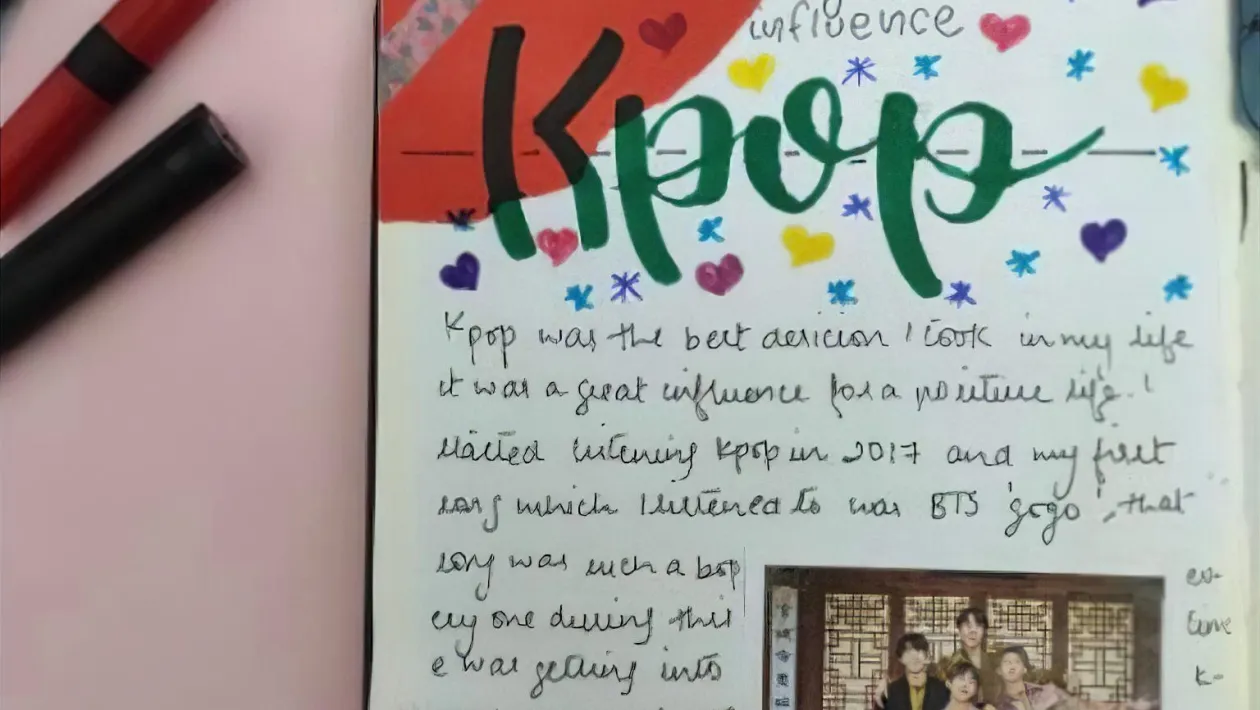 influence
Kpop
Kpop was the best desicion I took in my life
it was a great influence for a positive life. I
started listening kpop in 2017 and my first
song which I listened to was BTS 'gogo', that
song was such a bop ev-
ery one during this time
e was getting into k-